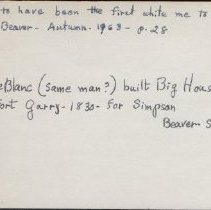 to have been the first white me to
Beaver - Autumn - 1963 - p. 28
eBlanc (same man?) built Big Hous
ort Garry - 1830 - for Simpson
Beaver - S